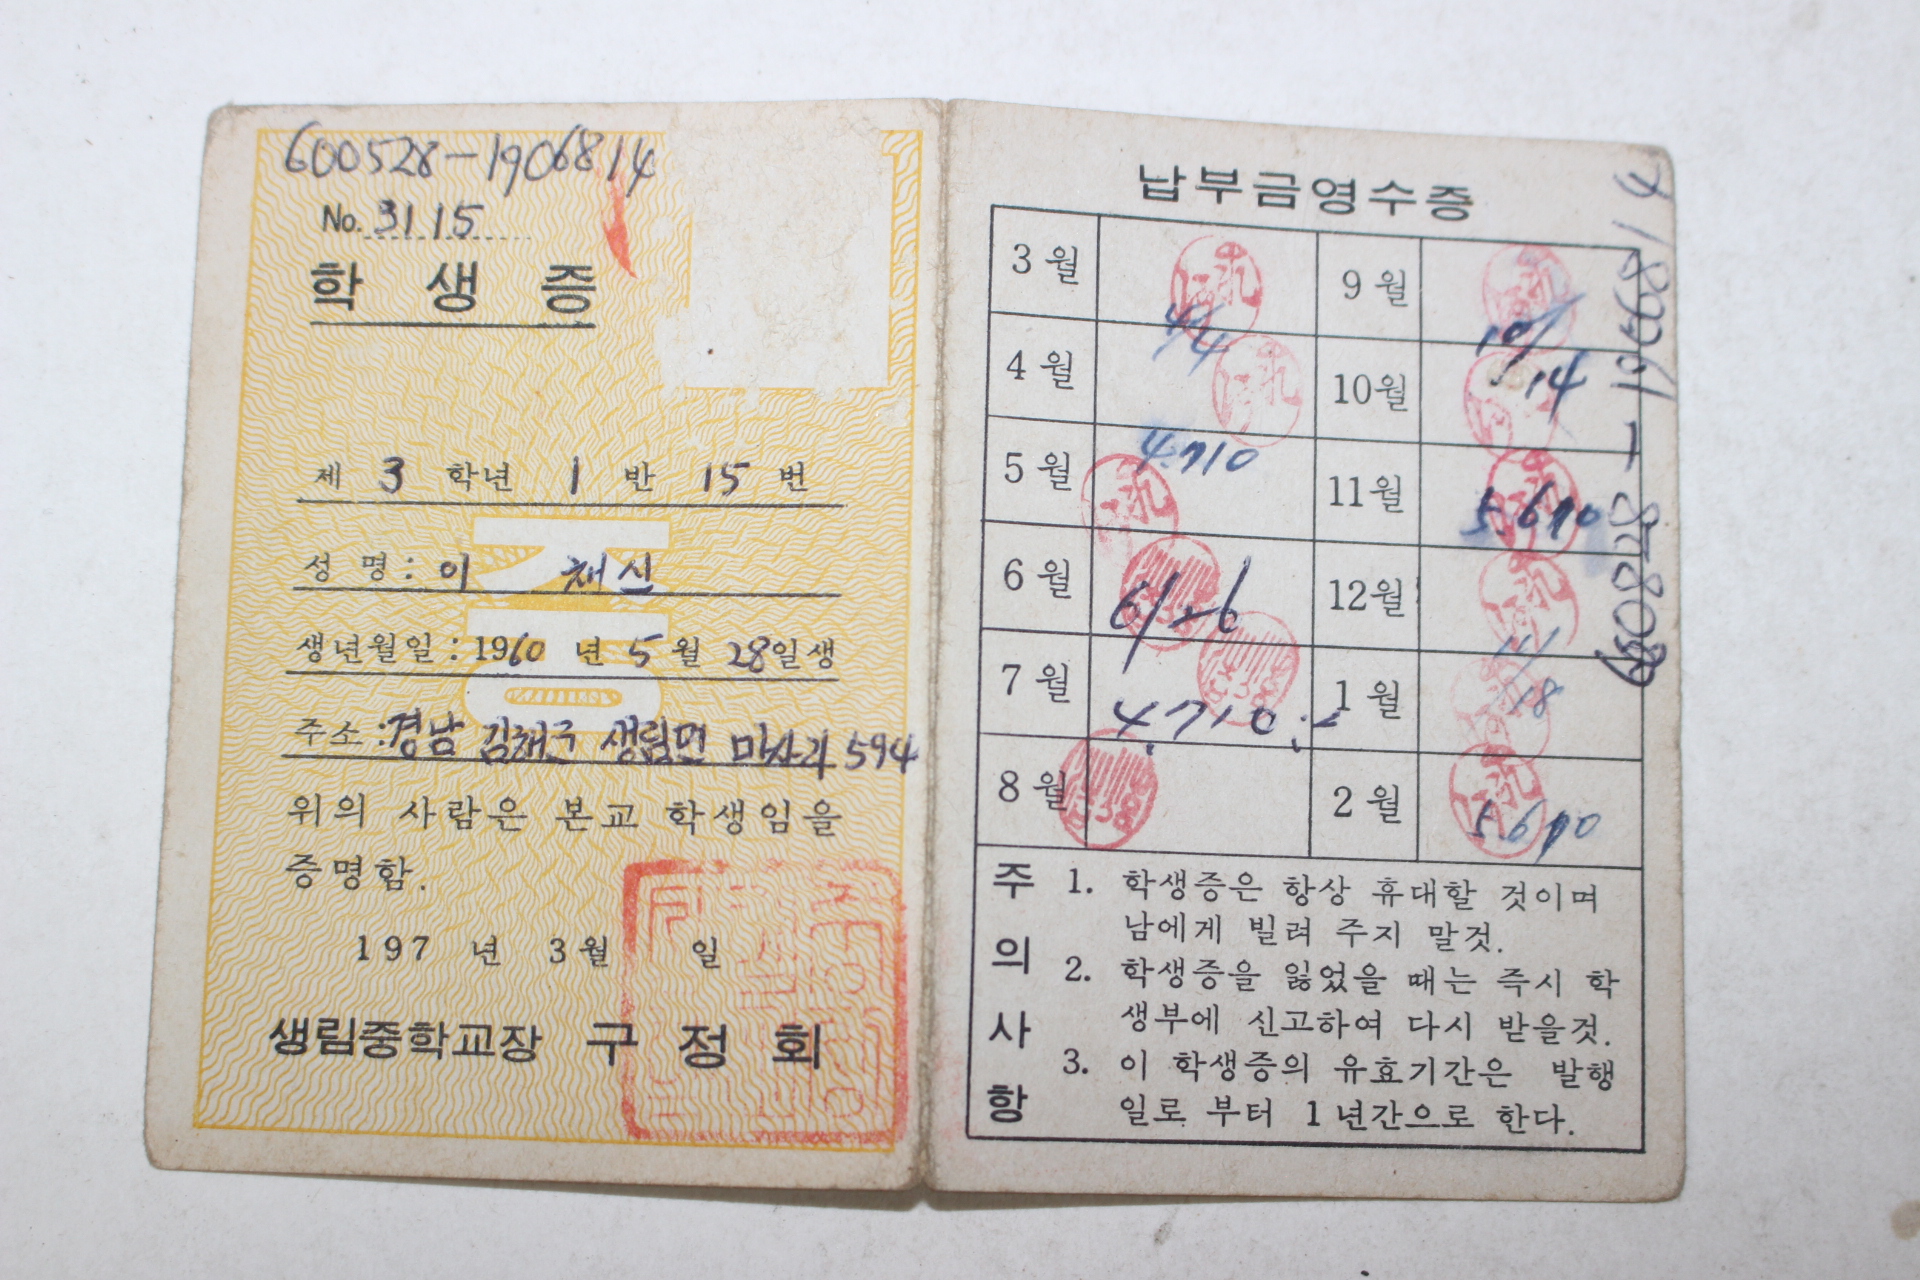 600528-1906814
No. 3115
학생증
제 3 학년 1 반 15 번
성 명: 이 채신
생년월일: 1960 년 5 월 28일생
주소: 경남 김해군 생림면 마사리 594
위의 사람은 본교 학생임을
증명함.
197 년 3월 일
생림중학교장 구정회
납부금영수증
3월
4/4
9월
10/14
4월
10월
5월
4.710
11월
5.610
6월
12월
7월
4.710
1월
11/18
8월
2월
5.610
주의사항
1. 학생증은 항상 휴대할 것이며
남에게 빌려 주지 말것.
2. 학생증을 잃었을 때는 즉시 학
생부에 신고하여 다시 받을것.
3. 이 학생증의 유효기간은 발행
일로 부터 1년간으로 한다.